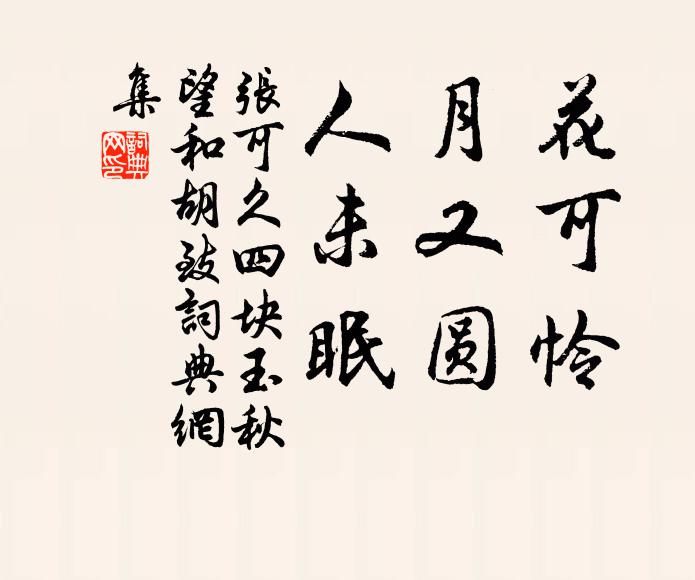 花可怜
月又圆
人未眠
張可久四块玉秋
望和胡致詞典網
集
詞典
网印